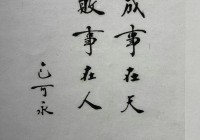 成事在天
敗事在人
己可永